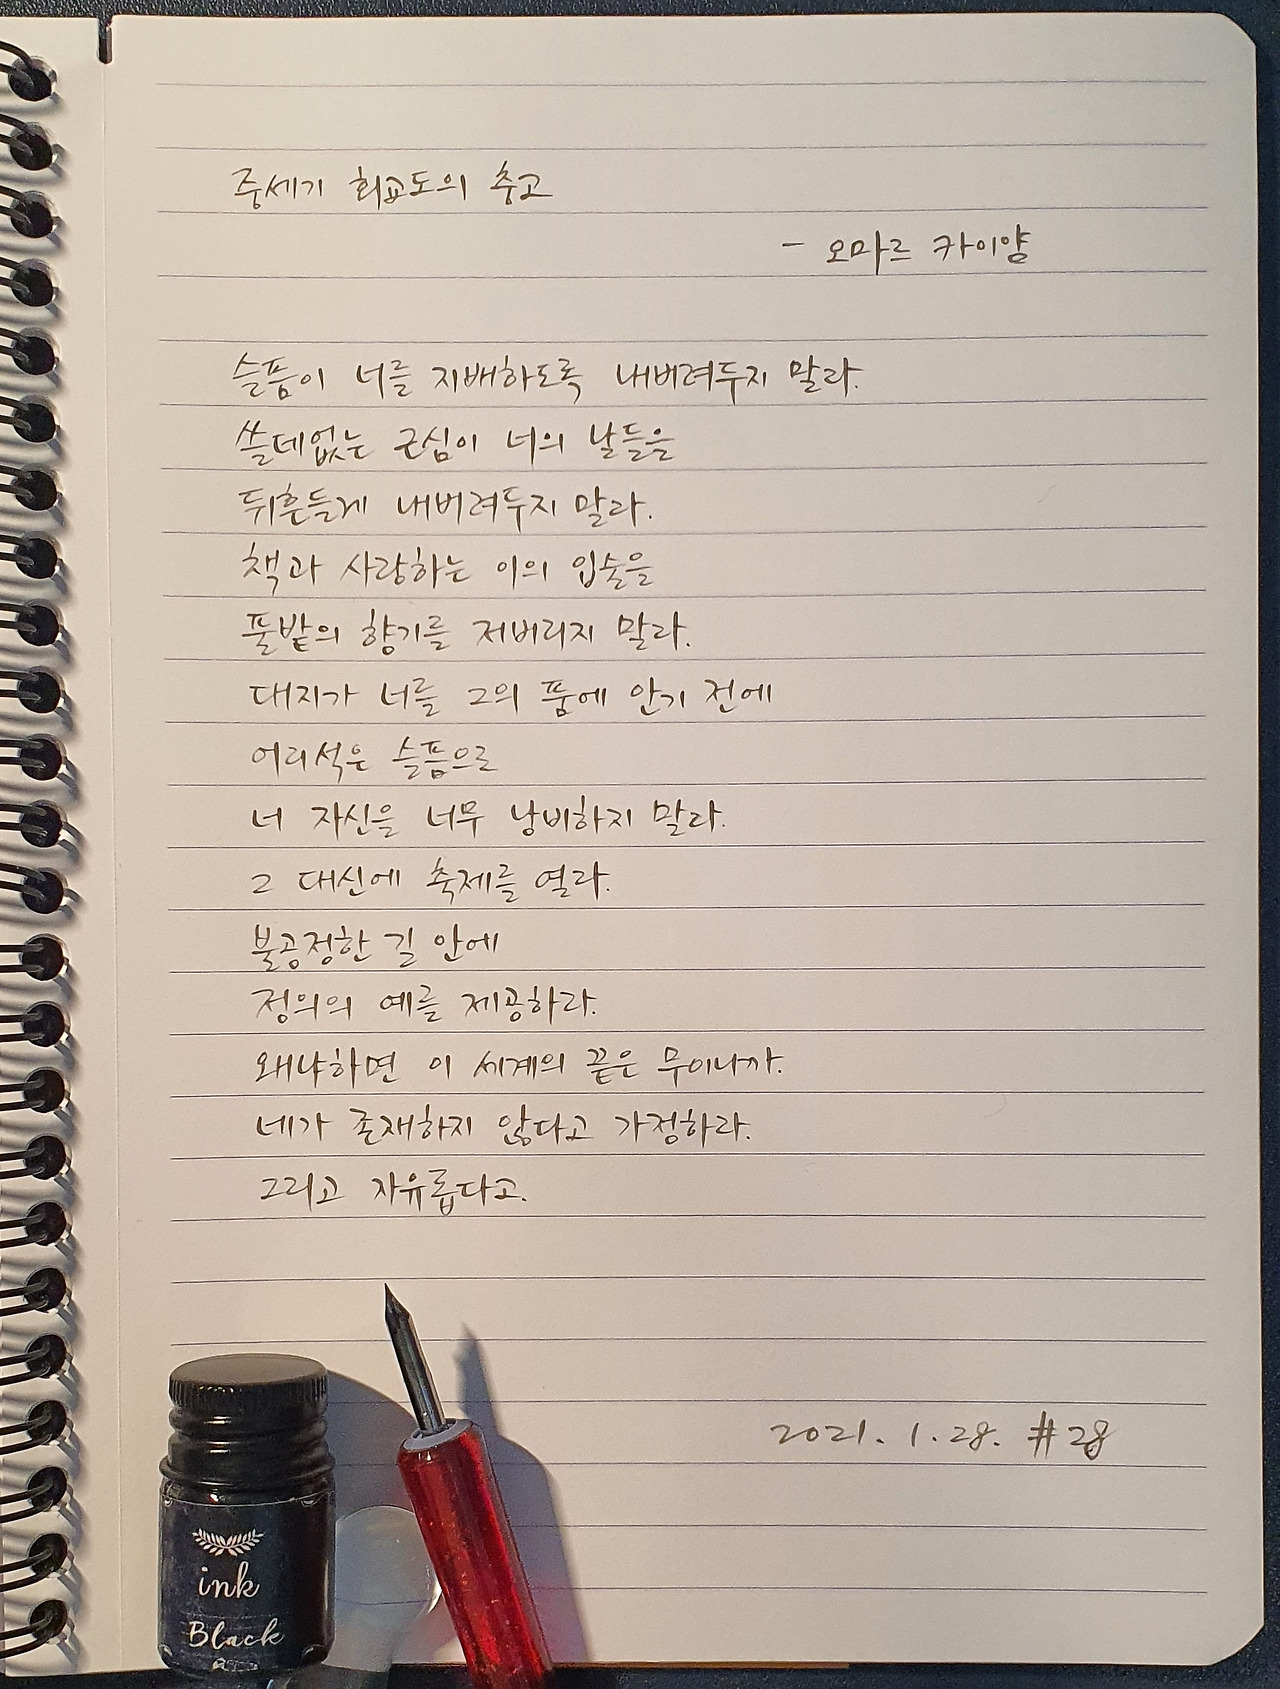 중세기 회교도의 충고
- 오마르 카이얌
슬픔이 너를 지배하도록 내버려두지 말라.
쓸데없는 근심이 너의 날들을
뒤흔들게 내버려두지 말라.
책과 사랑하는 이의 입술을
풀밭의 향기를 저버리지 말라.
대지가 너를 그의 품에 안기 전에
어리석은 슬픔으로
너 자신을 너무 낭비하지 말라.
그 대신에 축제를 열라.
불공정한 길 안에
정의의 예를 제공하라.
왜냐하면 이 세계의 끝은 무이니까.
네가 존재하지 않다고 가정하라.
그리고 자유롭다고.
2021. 1. 28. #28
ink
Black